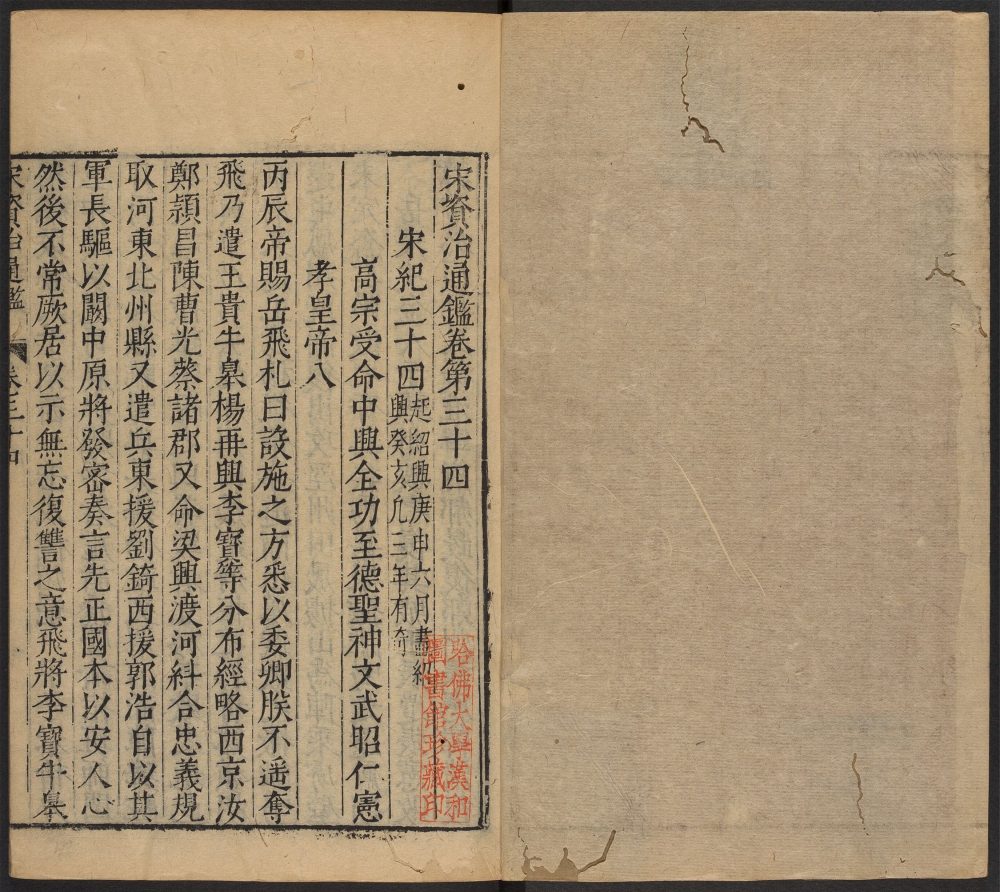 宋資治通鑑卷第三十四
宋紀三十四起紹興庚申六月盡紹
興癸亥凡三年有竒
高宗受命中興全功至德聖神文武昭仁憲
孝皇帝八
丙辰帝賜岳飛札曰設施之方悉以委卿朕不遥奪
飛乃遣王貴牛皋楊再興李寳等分布經略西京汝
鄭潁昌陳曹光蔡諸郡又命梁興渡河糾合忠義規
取河東北州縣又遣兵東援劉錡西援郭浩自以其
軍長驅以闞中原將發密奏言先正國本以安人心
然後不常厥居以示無忘復讐之意飛將李寳牛皋
宋資治通鑑 卷三十四
哈佛大學漢和
圖書館珍藏印